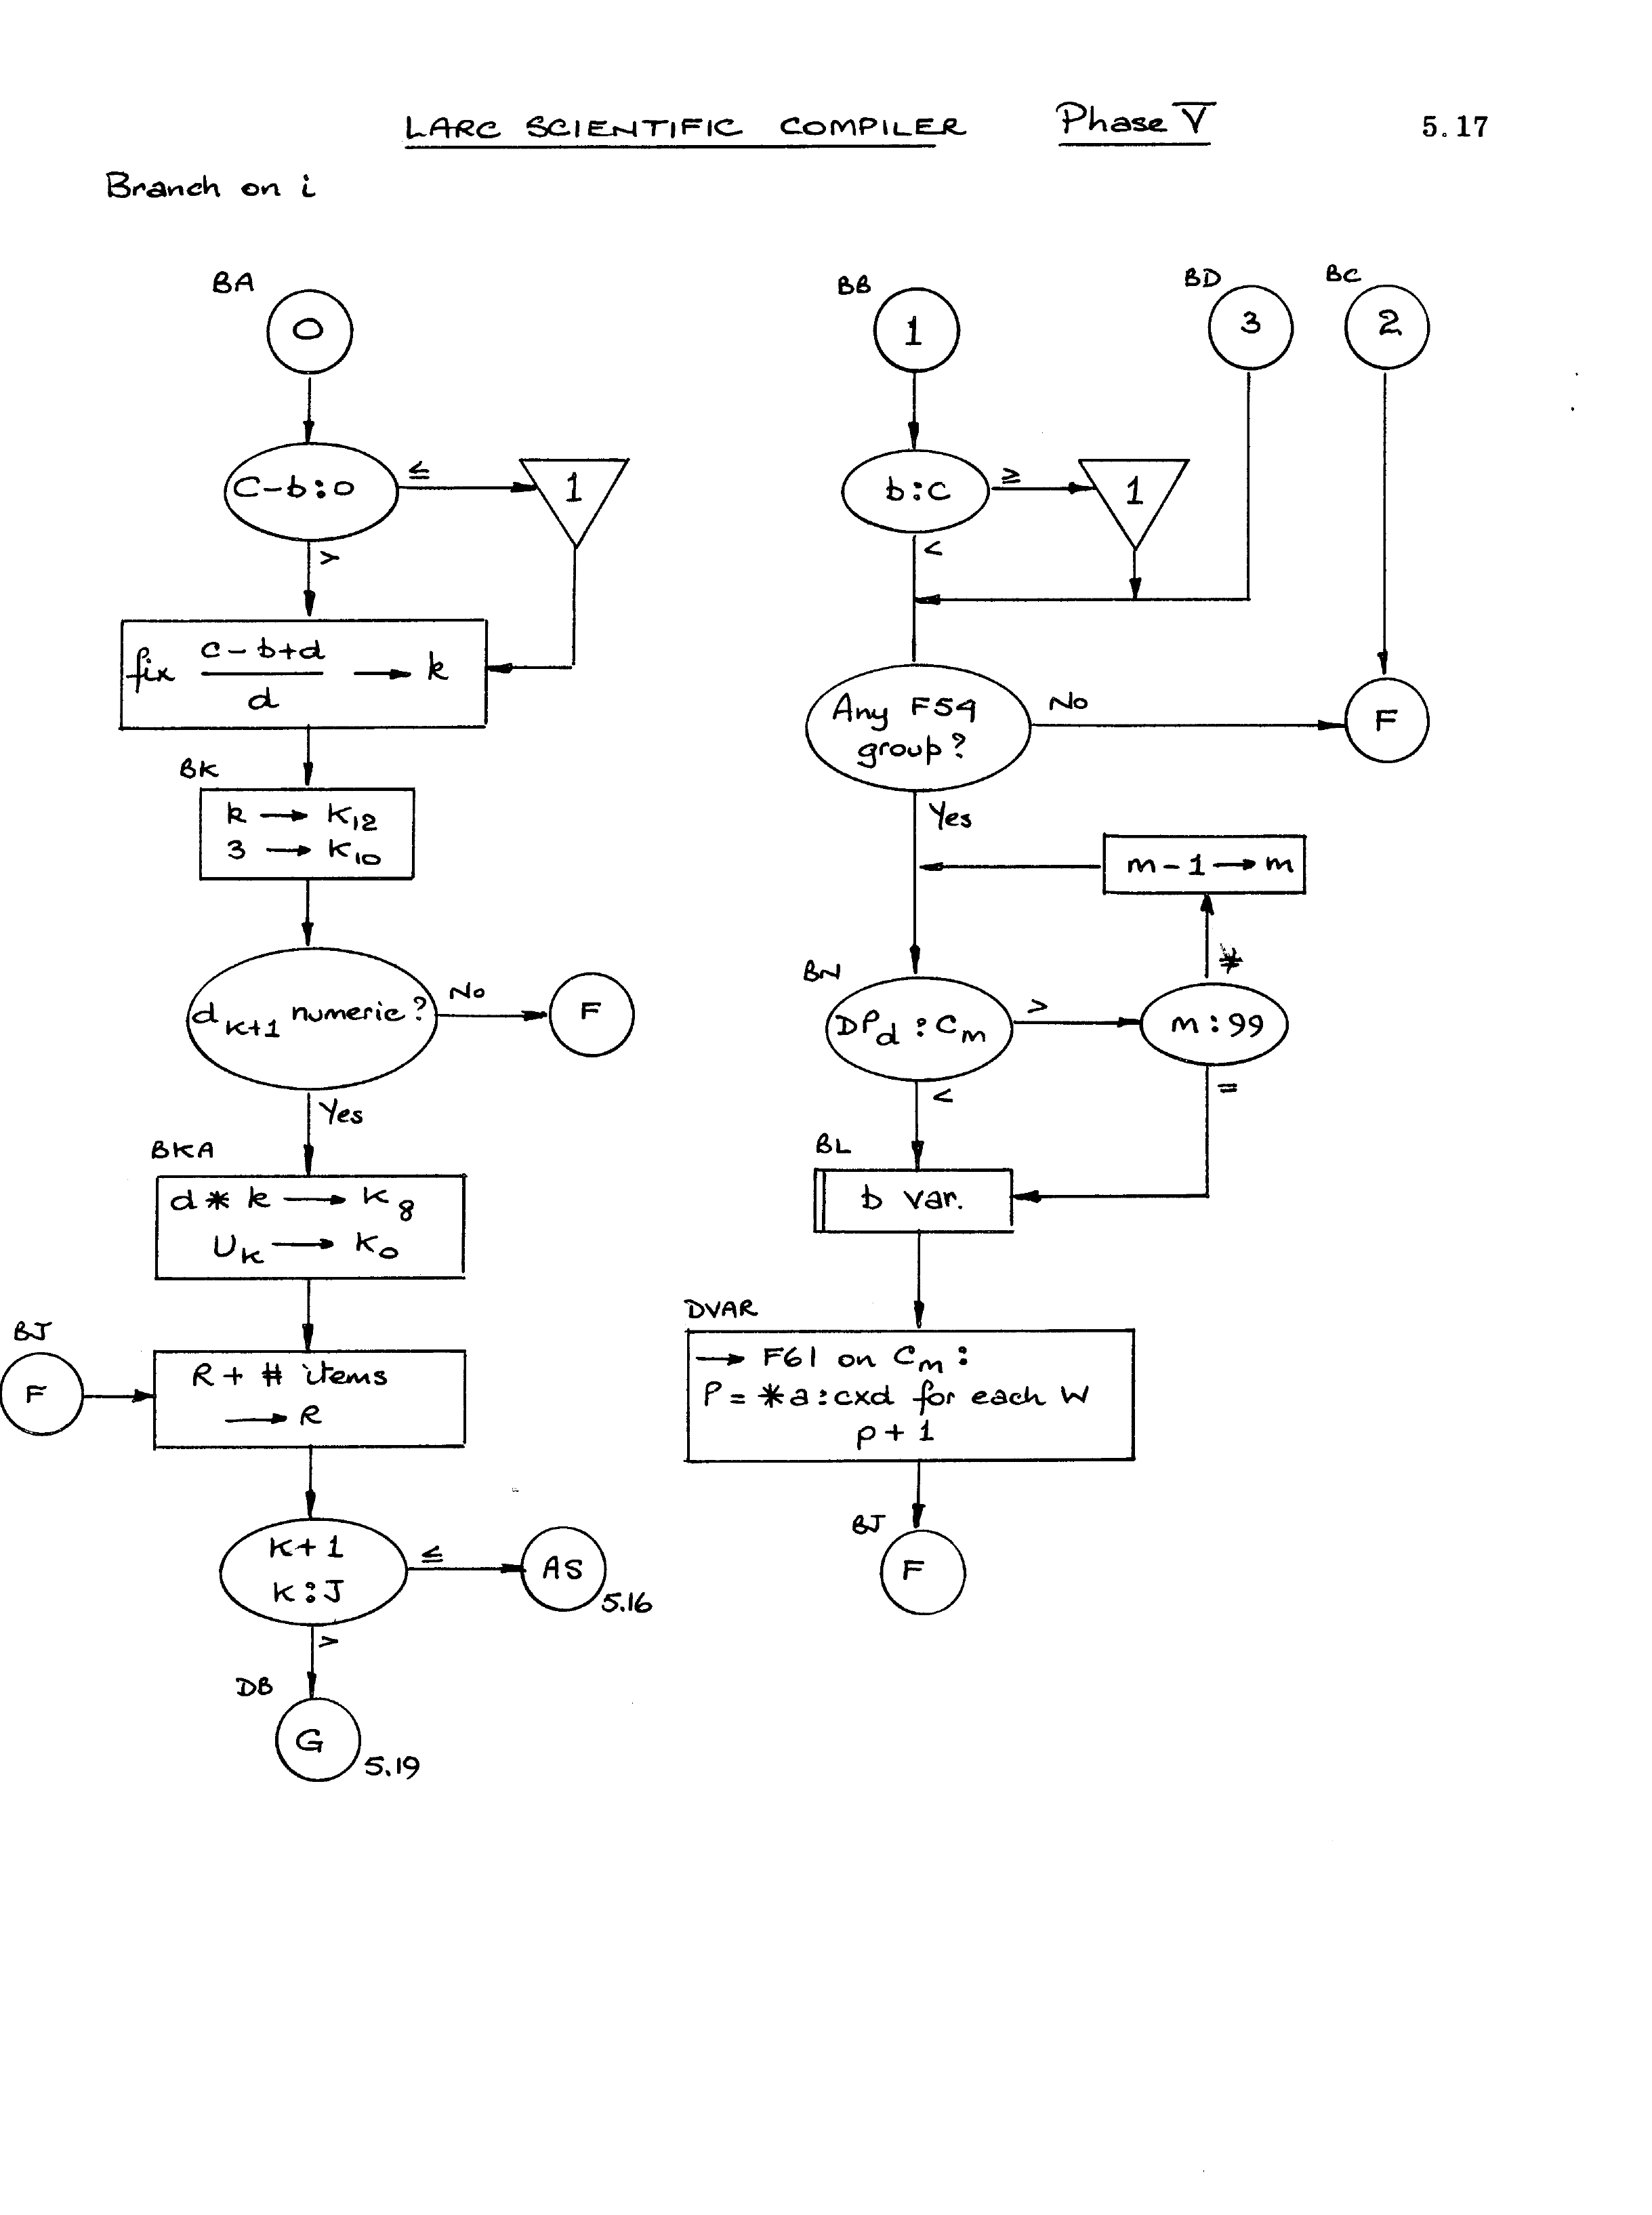 LARC SCIENTIFIC COMPILER Phase V 5.17
Branch on i
BA
0
C-b:0
≤
1
>
fix (c-b+d)/d → k
BK
k → K12
3 → K10
dK+1 numeric?
No
F
Yes
BKA
d * k → K8
UK → K0
BJ
F
R + # items
→ R
K+1
K:J
≤
AS
5.16
>
DB
G
5.19
BB
1
b:c
≥
1
<
BD
3
BC
2
Any F54
group?
No
F
Yes
m-1 → m
BN
DPd : Cm
>
m:99
≠
=
<
BL
b var.
DVAR
→ F61 on Cm:
P = *a:cxd for each W
p+1
BJ
F